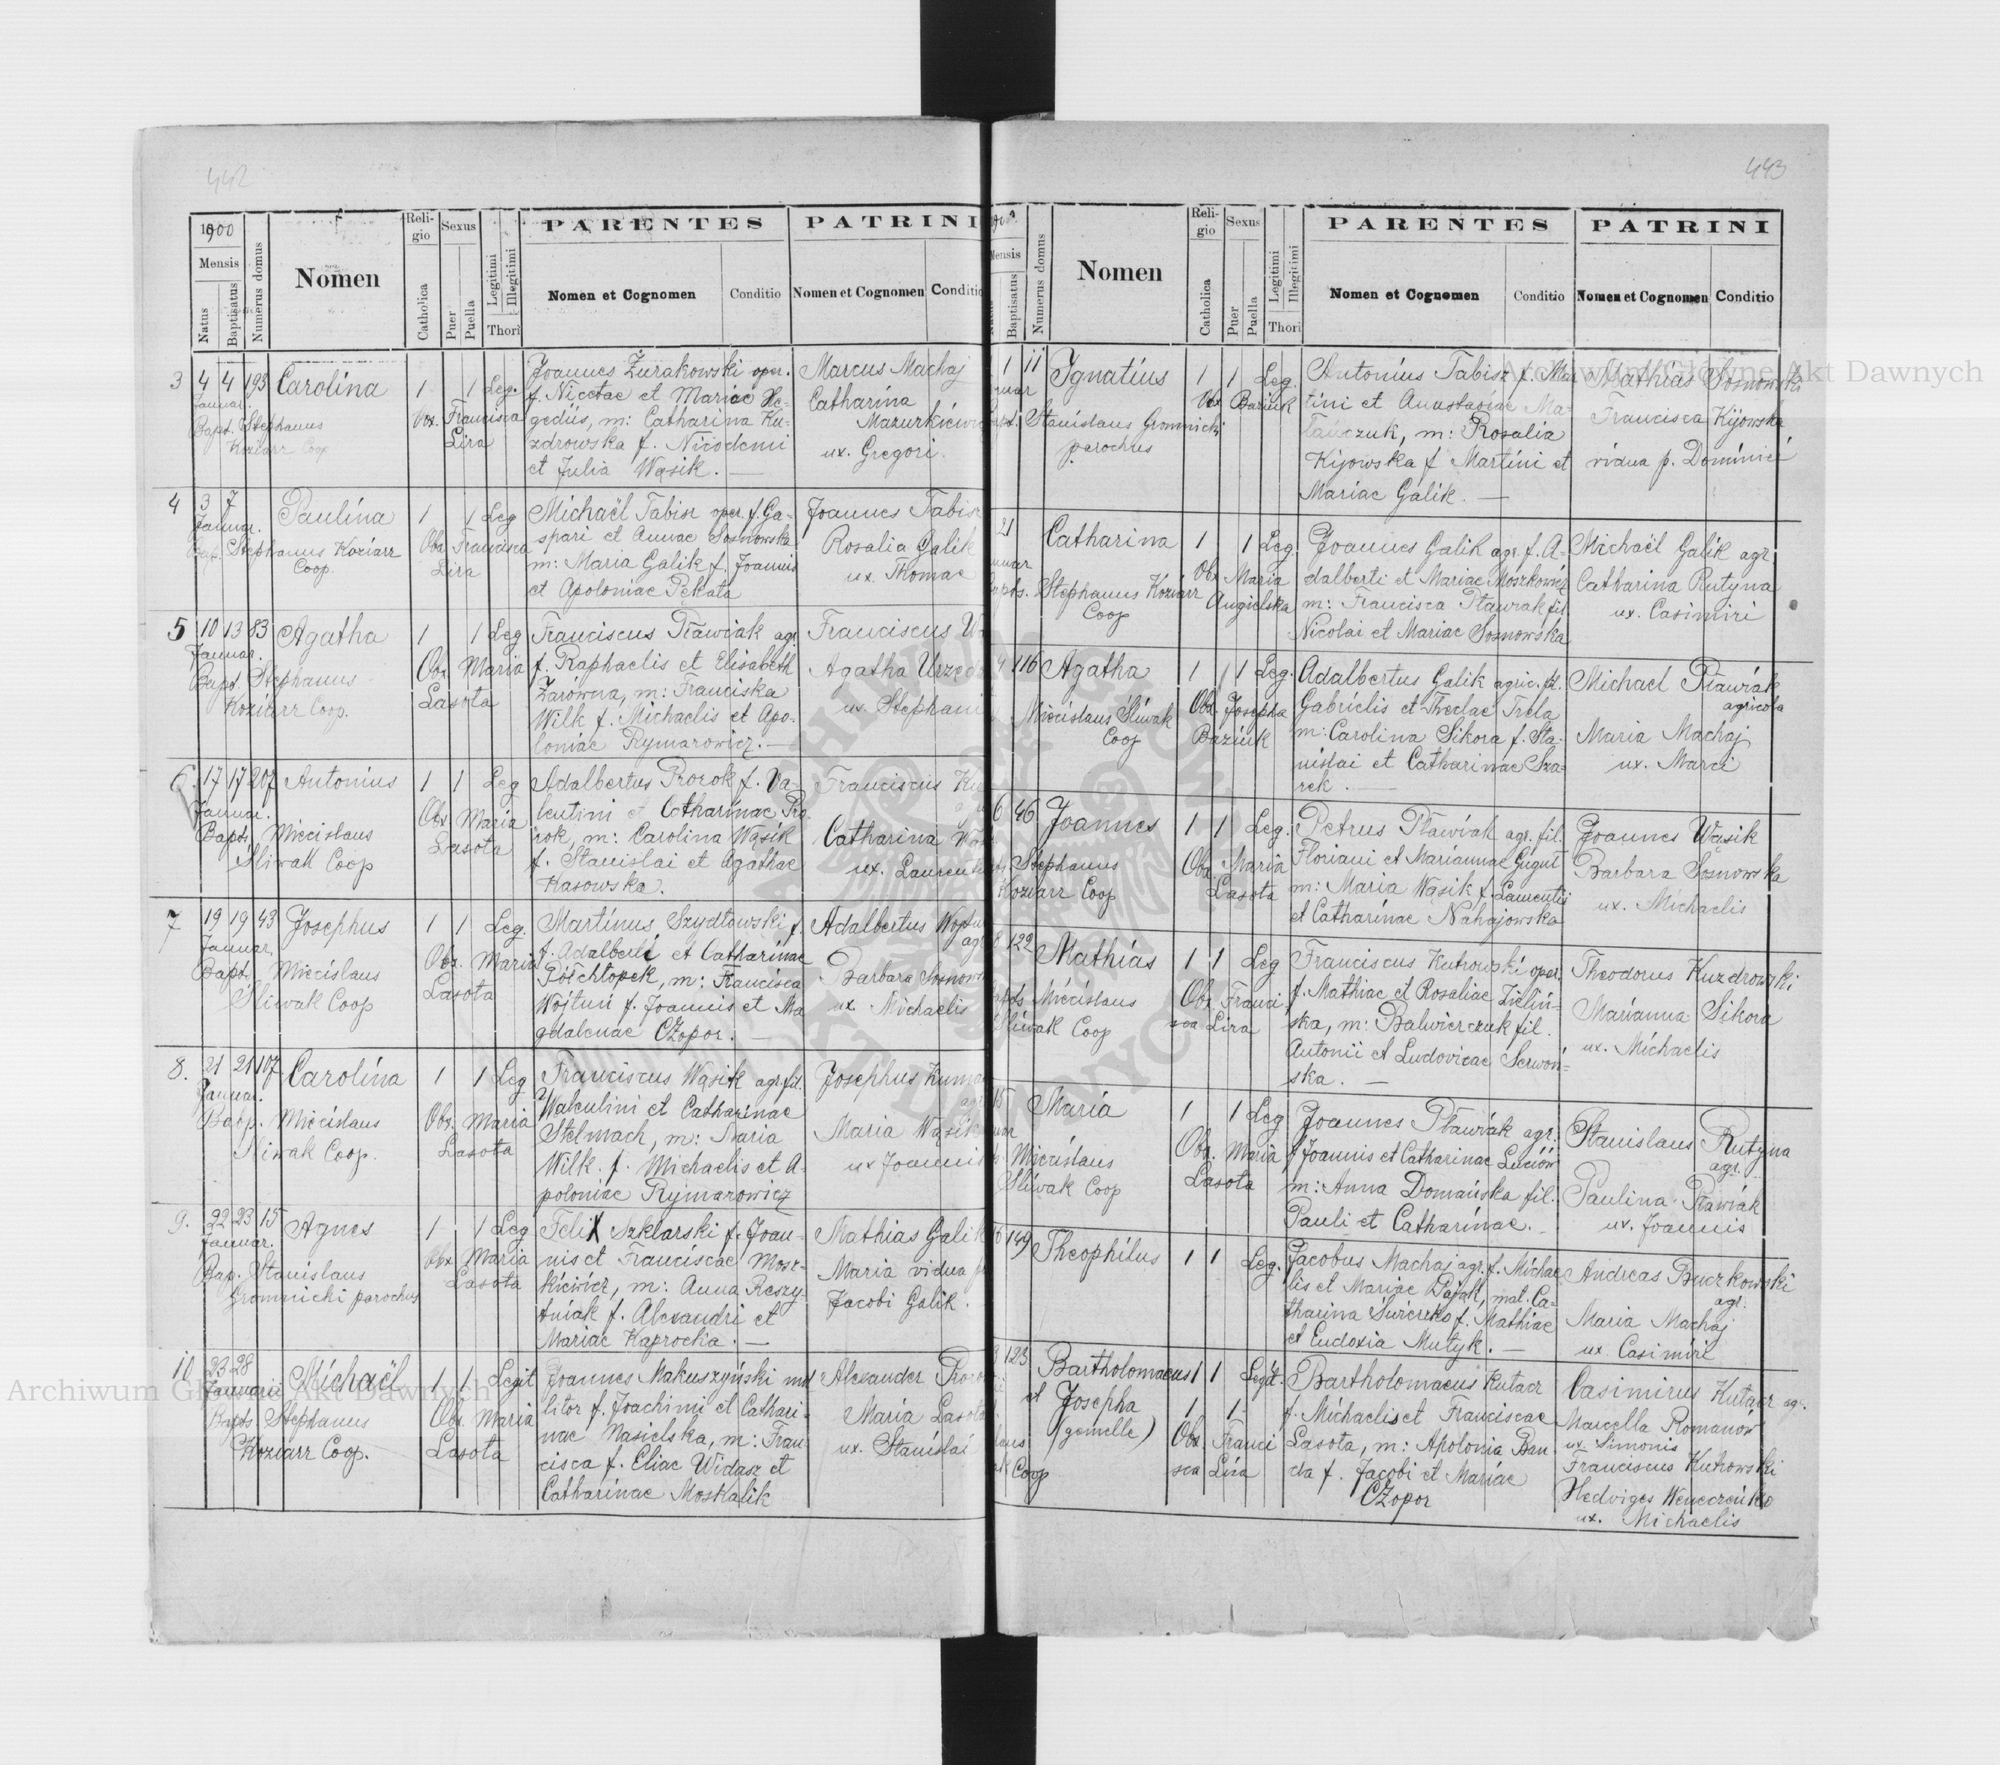 442
1900
Mensis
Natus
Baptisatus
Numerus domus
Nomen
Religio
Catholica
Sexus
Puer
Puella
Legitimi
Illegitimi
Thori
PARENTES
Nomen et Cognomen
Conditio
PATRINI
Nomen et Cognomen
Conditio
3
4 4 193 Carolina 1 1 Leg.
Januar.
Bapt. Stephanus
Koziarz Coop
Obx. Francisca
Lira
Joannes Żurakowski oper.
f. Nicolae et Mariae He-
gedüs, m: Catharina Ku-
zdrowska f. Nicodemi
et Julia Wąsik. —
Marcus Machaj
Catharina
ux. Gregori.
4
3 7 Paulina 1 1 Leg
Januar.
Bap. Stephanus Koziarz
Coop.
Obx Francisca
Lira
Michaël Tabisz oper. f. Ga-
spari et Annae Sosnowska
m: Maria Galik f. Joannis
et Apoloniae Pekata
Joannes Tabisz
Rosalia Galik
ux. Thomae
5
10 13 83 Agatha 1 1 Leg
Januar.
Bapt. Stephanus
Koziarz Coop.
Obx. Maria
Lasota
Franciscus Pławiak agr.
f. Raphaelis et Elisabeth
Żarówna, m: Franciska
Wilk f. Michaelis et Apo-
loniae Rymarowicz. —
Franciscus
Agatha
ux. Stephani
6.
17 17 207 Antonius 1 1 Leg
Januar.
Bapt. Miecislaus
Sliwak Coop
Obx Maria
Lasota
Adalbertus Prorok f. Va-
lentini et Catharinae Pro-
rok, m: Carolina Wąsik
f. Stanislai et Agathae
Kasowska.
Franciscus
Catharina
ux. Laurenti
7
19 19 43 Josephus 1 1 Leg.
Januar.
Bapt. Miecislaus
Sliwak Coop
Obx. Maria
Lasota
Martinus Szydławski f.
f. Adalberti et Catharinae
Półchłopek, m: Francisca
Wojtuń f. Joannis et Ma
gdalenae CZopor. —
Adalbertus
agr
Barbara
ux. Michaelis
8.
21 21 107 Carolina 1 1 Leg
Januar.
Bapt. Miecislaus
Sliwak Coop.
Obx. Maria
Lasota
Franciscus Wąsik agr. fil.
Walentini et Catharinae
Stelmach, m: Maria
Wilk. f. Michaelis et A-
poloniae Rymarowicz
Josephus
Maria Wąsik
ux Joannis
9.
22 23 15 Agnes 1 1 Leg
Januar.
Bap. Stanislaus
Gromnicki parochus
Obx Maria
Lasota
Felix Szklarski f. Joan-
nis et Franciscae Mosz-
kiewicz, m: Anna Reszy-
tniak f. Alexandri et
Mariae Kaprocka. —
Mathias Galik
Maria vidua
Jacobi Galik.
10
23 28 Michaël 1 1 Legit
Januarii
Bapt. Stephanus
Koziarz Coop.
Obx. Maria
Lasota
Joannes Makuszyński mo
litor f. Joachimi et Cathari-
nae Masielska, m: Fran-
cisca f. Eliae Widasz et
Catharinae Moskalik
Alexander
Maria Lasota
ux. Stanislai
443
Baptisatus
Numerus domus
Nomen
Religio
Catholica
Sexus
Puer
Puella
Legitimi
Illegitimi
Thori
PARENTES
Nomen et Cognomen
Conditio
PATRINI
Nomen et Cognomen
Conditio
1 11 Ignatius 1 1 Leg.
Stanislaus Gromnicki
parochus
Obx Baziuk
Antonius Tabisz f. Mar
tini et Anastasiae Ma-
łańczuk, m: Rosalia
Kijowska f Martini et
Mariae Galik. —
Mathias Sosnowski
Francisca Kijowska
vidua p. Dominici
21 Catharina 1 1 Leg.
Stephanus Koziarz
Coop
Obx Maria
Angielska
Joannes Galik agr. f. A-
dalberti et Mariae Moszkowicz
m: Francisca Pławiak fil.
Nicolai et Mariae Sosnowska
Michaël Galik agr
Catharina Rutyna
ux. Casimiri
116 Agatha 1 1 Leg.
Miecislaus Sliwak
Coop
Obx. Josepha
Baziuk
Adalbertus Galik agric. fil.
Gabrielis et Theclae Trela
m: Carolina Sikora f. Sta-
nislai et Catharinae Sza-
rek. —
Michael Pławiak
agricola
Maria Machaj
ux. Marci
46 Joannes 1 1 Leg.
Stephanus
Koziarz Coop
Obx. Maria
Lasota
Petrus Pławiak agr. fil.
Floriani et Mariannae Gugut
m: Maria Wąsik f. Laurentii
et Catharinae Nahajowska
Joannes Wąsik
Barbara Sosnowska
ux. Michaelis
122 Mathias 1 1 Leg
Miecislaus
Sliwak Coop
Obx. Franci
sca Lira
Franciscus Kutrowski oper.
f. Mathiae et Rosaliae Zieliń-
ska, m: Balwierczuk fil.
Antonii et Ludovicae Serwoń-
ska. —
Theodorus Kuzdrowski
Marianna Sikora
ux. Michaelis
Maria 1 1 Leg
Miecislaus
Sliwak Coop
Obx. Maria
Lasota
Joannes Pławiak agr.
f Joannis et Catharinae Luciów
m: Anna Domańska fil.
Pauli et Catharinae. —
Stanislaus Rutyna
agr.
Paulina Pławiak
ux. Joannis
149 Theophilus 1 1 Leg.
Jacobus Machaj agr. f. Michae
lis et Mariae Pająk, mat. Ca-
tharina Świerzko f. Mathiae
et Eudoxia Mutyk. —
Andreas Buczkowski
agr.
Maria Machaj
ux. Casimiri
123 Bartholomaeus 1 1 Legit.
et Josepha 1 1
(gemelle)
Coop
Obx Franci
sca Lira
Bartholomaeus Kutacz
f. Michaelis et Franciscae
Lasota, m: Apolonia Ban
da f. Jacobi et Mariae
CZopor
Casimirus Kutacz agr.
Marcella Romanów
ux. Simonis
Franciscus Kutrowski
Hedviges
ux. Michaelis
Archiwum Główne Akt Dawnych
Archiwum Główne Akt Dawnych